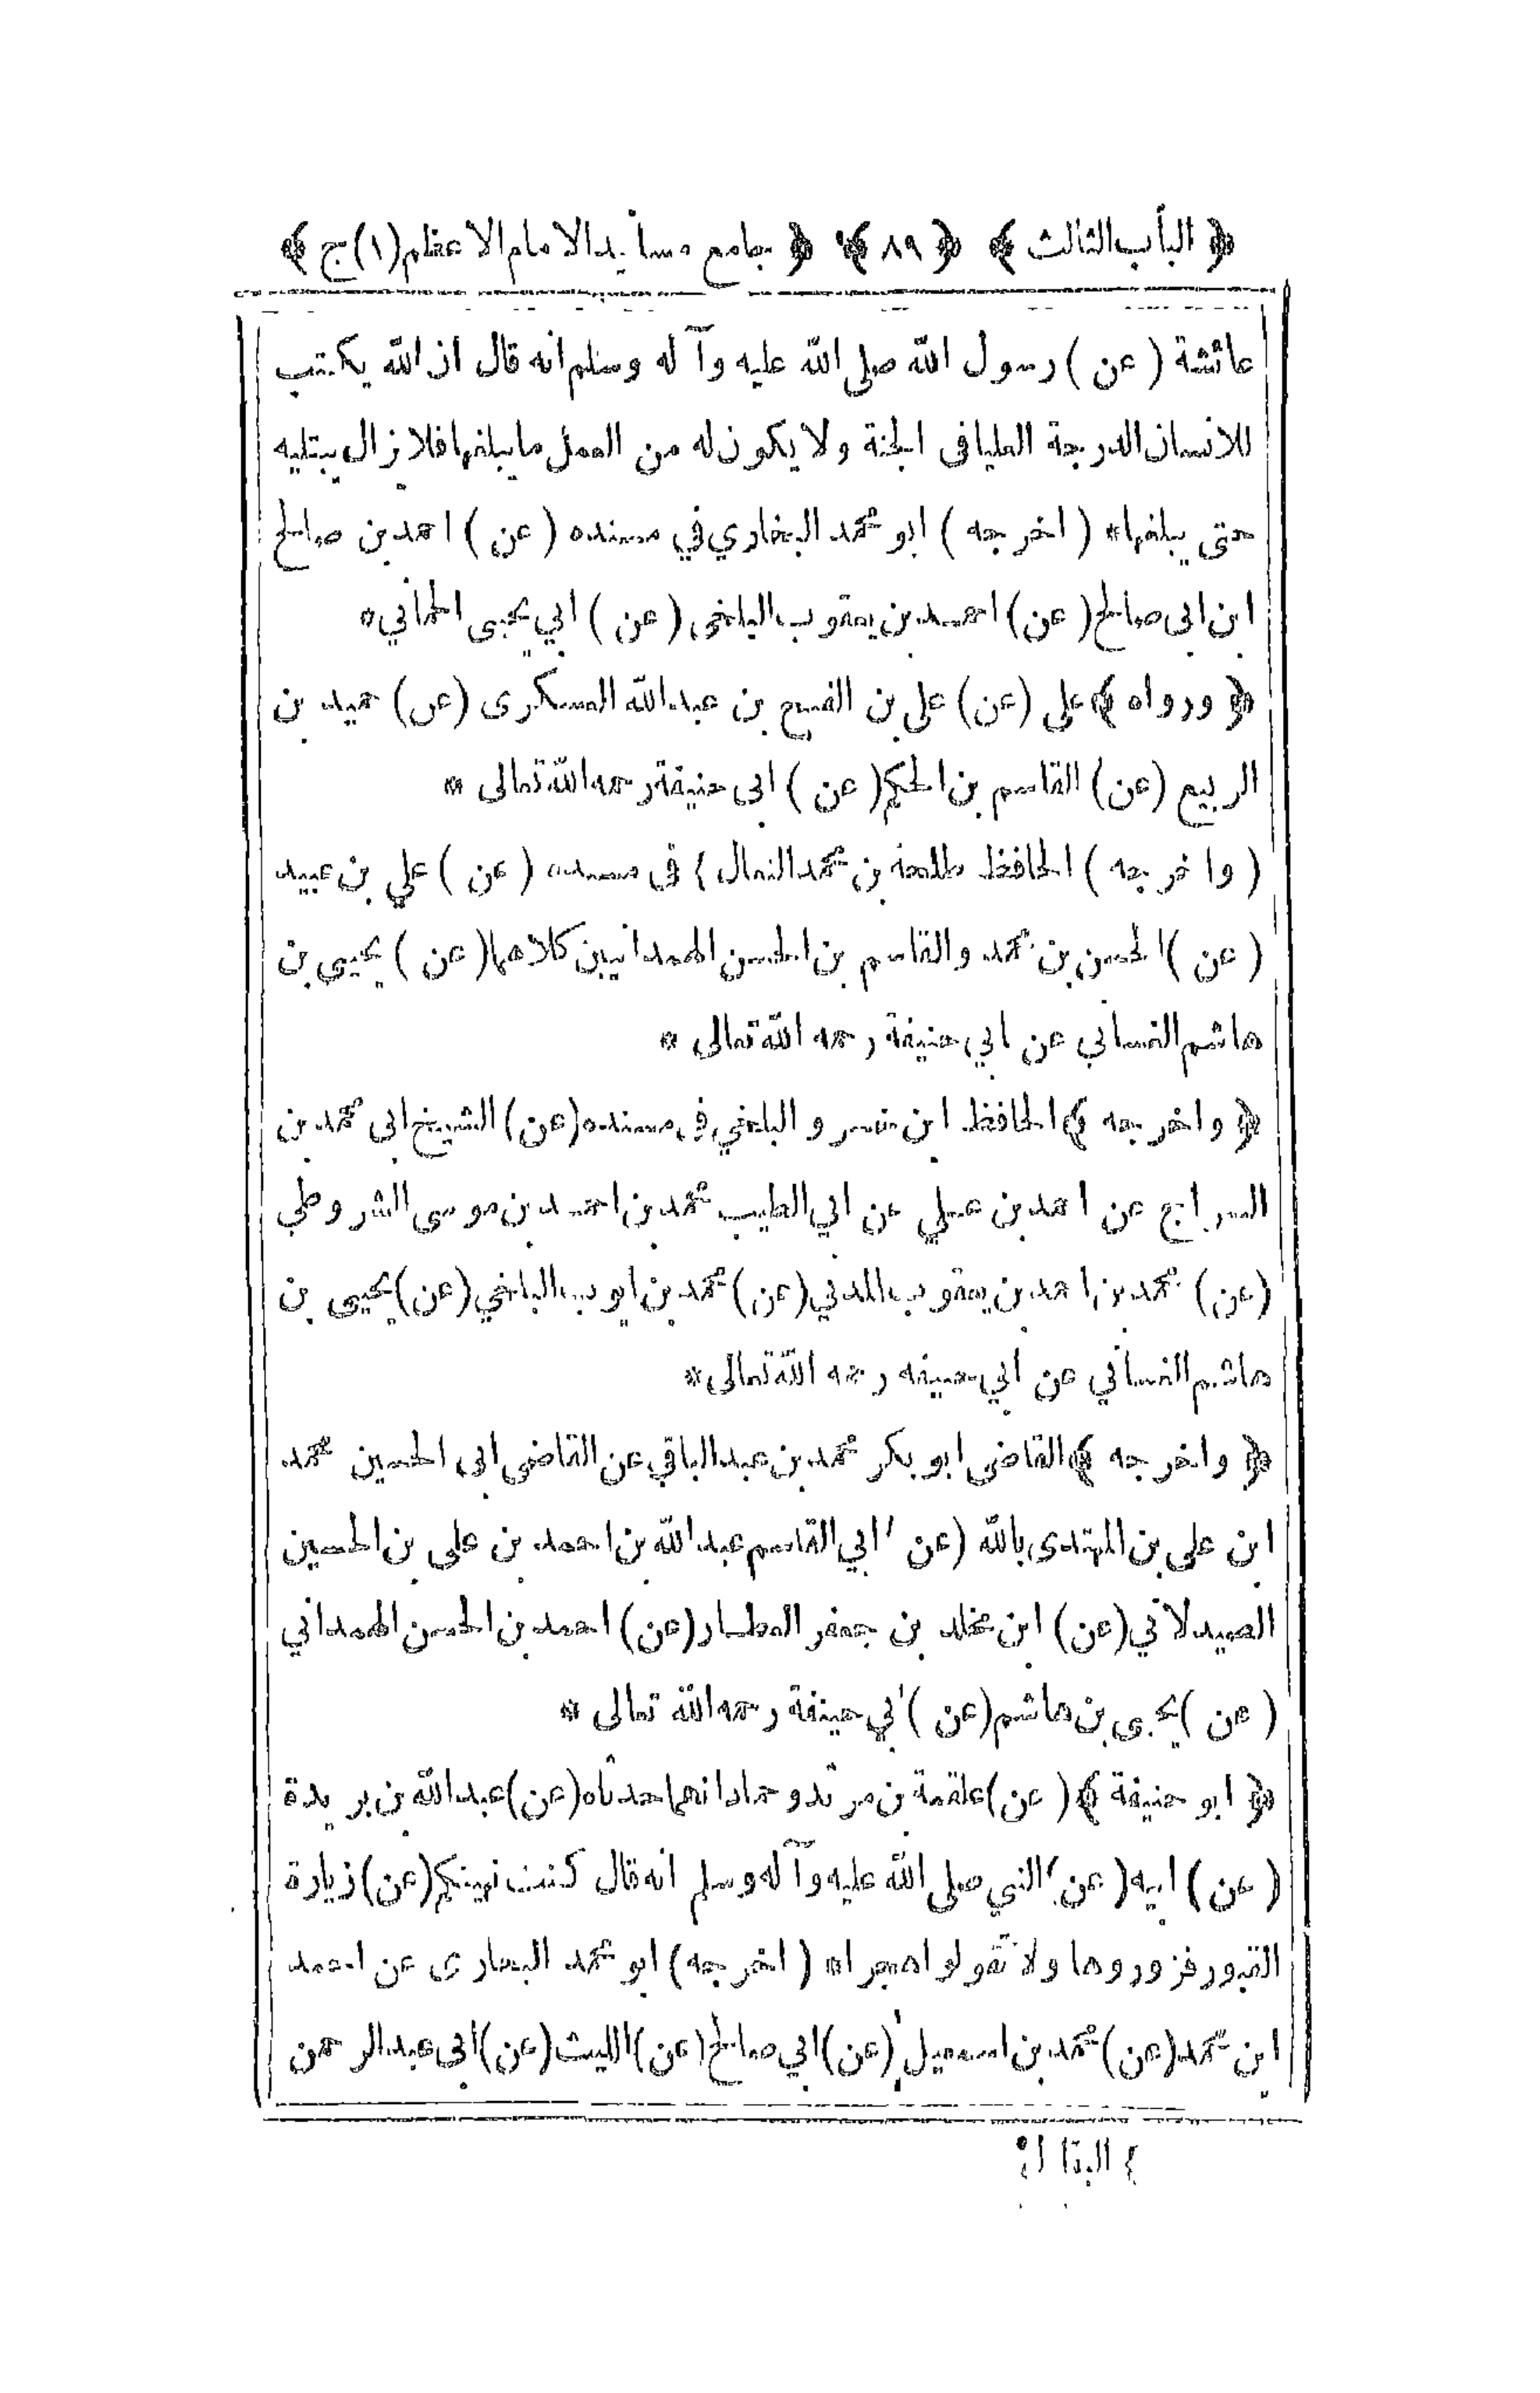 ﴿ الباب الثالث ﴾ ﴿ ٨٩ ﴾ ﴿ جامع مسانيد الامام الاعظم (١) ج ﴾
عائشة ( عن ) رسول الله صلى الله عليه وآله وسلم انه قال ان الله يكتب
للانسان الدرجة العليا فى الجنة ولا يكون له من العمل ما يبلغها فلا يزال يبتليه
حتى يبلغها * ( اخرجه ) ابو محمد البخاري في مسنده ( عن ) احمد بن صالح
ابن ابى صالح ( عن ) احمد بن يعقوب البلخى ( عن ) ابي يحيى الحماني *
﴿ ورواه ﴾ على (عن) علي بن الفتح بن عبد الله العسكرى (عن) حميد بن
الربيع (عن) القاسم بن الحكم ( عن ) ابى حنيفة رحمه الله تعالى *
( واخرجه ) الحافظ طلحة بن محمد النعال ٤ فى مسنده ( عن ) علي بن عبيد
( عن ) الحسن بن محمد والقاسم بن الحسن الهمدانيين كلاهما ( عن ) يحيى بن
هاشم الغساني عن ابي حنيفة رحمه الله تعالى *
﴿ واخرجه ﴾ الحافظ ابن خسرو البلخي فى مسنده (عن) الشيخ ابى محمد بن
السراج عن احمد بن على عن ابي الطيب محمد بن احمد بن موسى الشروطي
(عن) محمد بن احمد بن يعقوب المدني (عن) محمد بن ايوب البلخي (عن) يحيى بن
هاشم الغساني عن ابي حنيفه رحمه الله تعالى *
﴿ واخرجه ﴾ القاضى ابو بكر محمد بن عبد الباقي عن القاضى ابى الحسين محمد
ابن على بن المهتدى بالله (عن ) ابي القاسم عبد الله بن احمد بن على بن الحسين
الصيدلاني (عن) ابن مخلد بن جعفر العطار (عن) احمد بن الحسن الهمداني
( عن ) يحيى بن هاشم ( عن ) ابي حنيفة رحمه الله تعالى *
﴿ ابو حنيفة ﴾ ( عن ) علقمة بن مرثد وحماد انهما حدثاه (عن) عبد الله بن بريدة
( عن ) ابيه ( عن ) النبي صلى الله عليه وآله وسلم انه قال كنت نهيتكم (عن) زيارة
القبور فزوروها ولا تقولوا هجرا * ( اخرجه ) ابو محمد البخارى عن احمد
ابن محمد (عن) محمد بن اسمعيل (عن) ابي صالح (عن) الليث (عن) ابى عبد الرحمن
٤ البقال